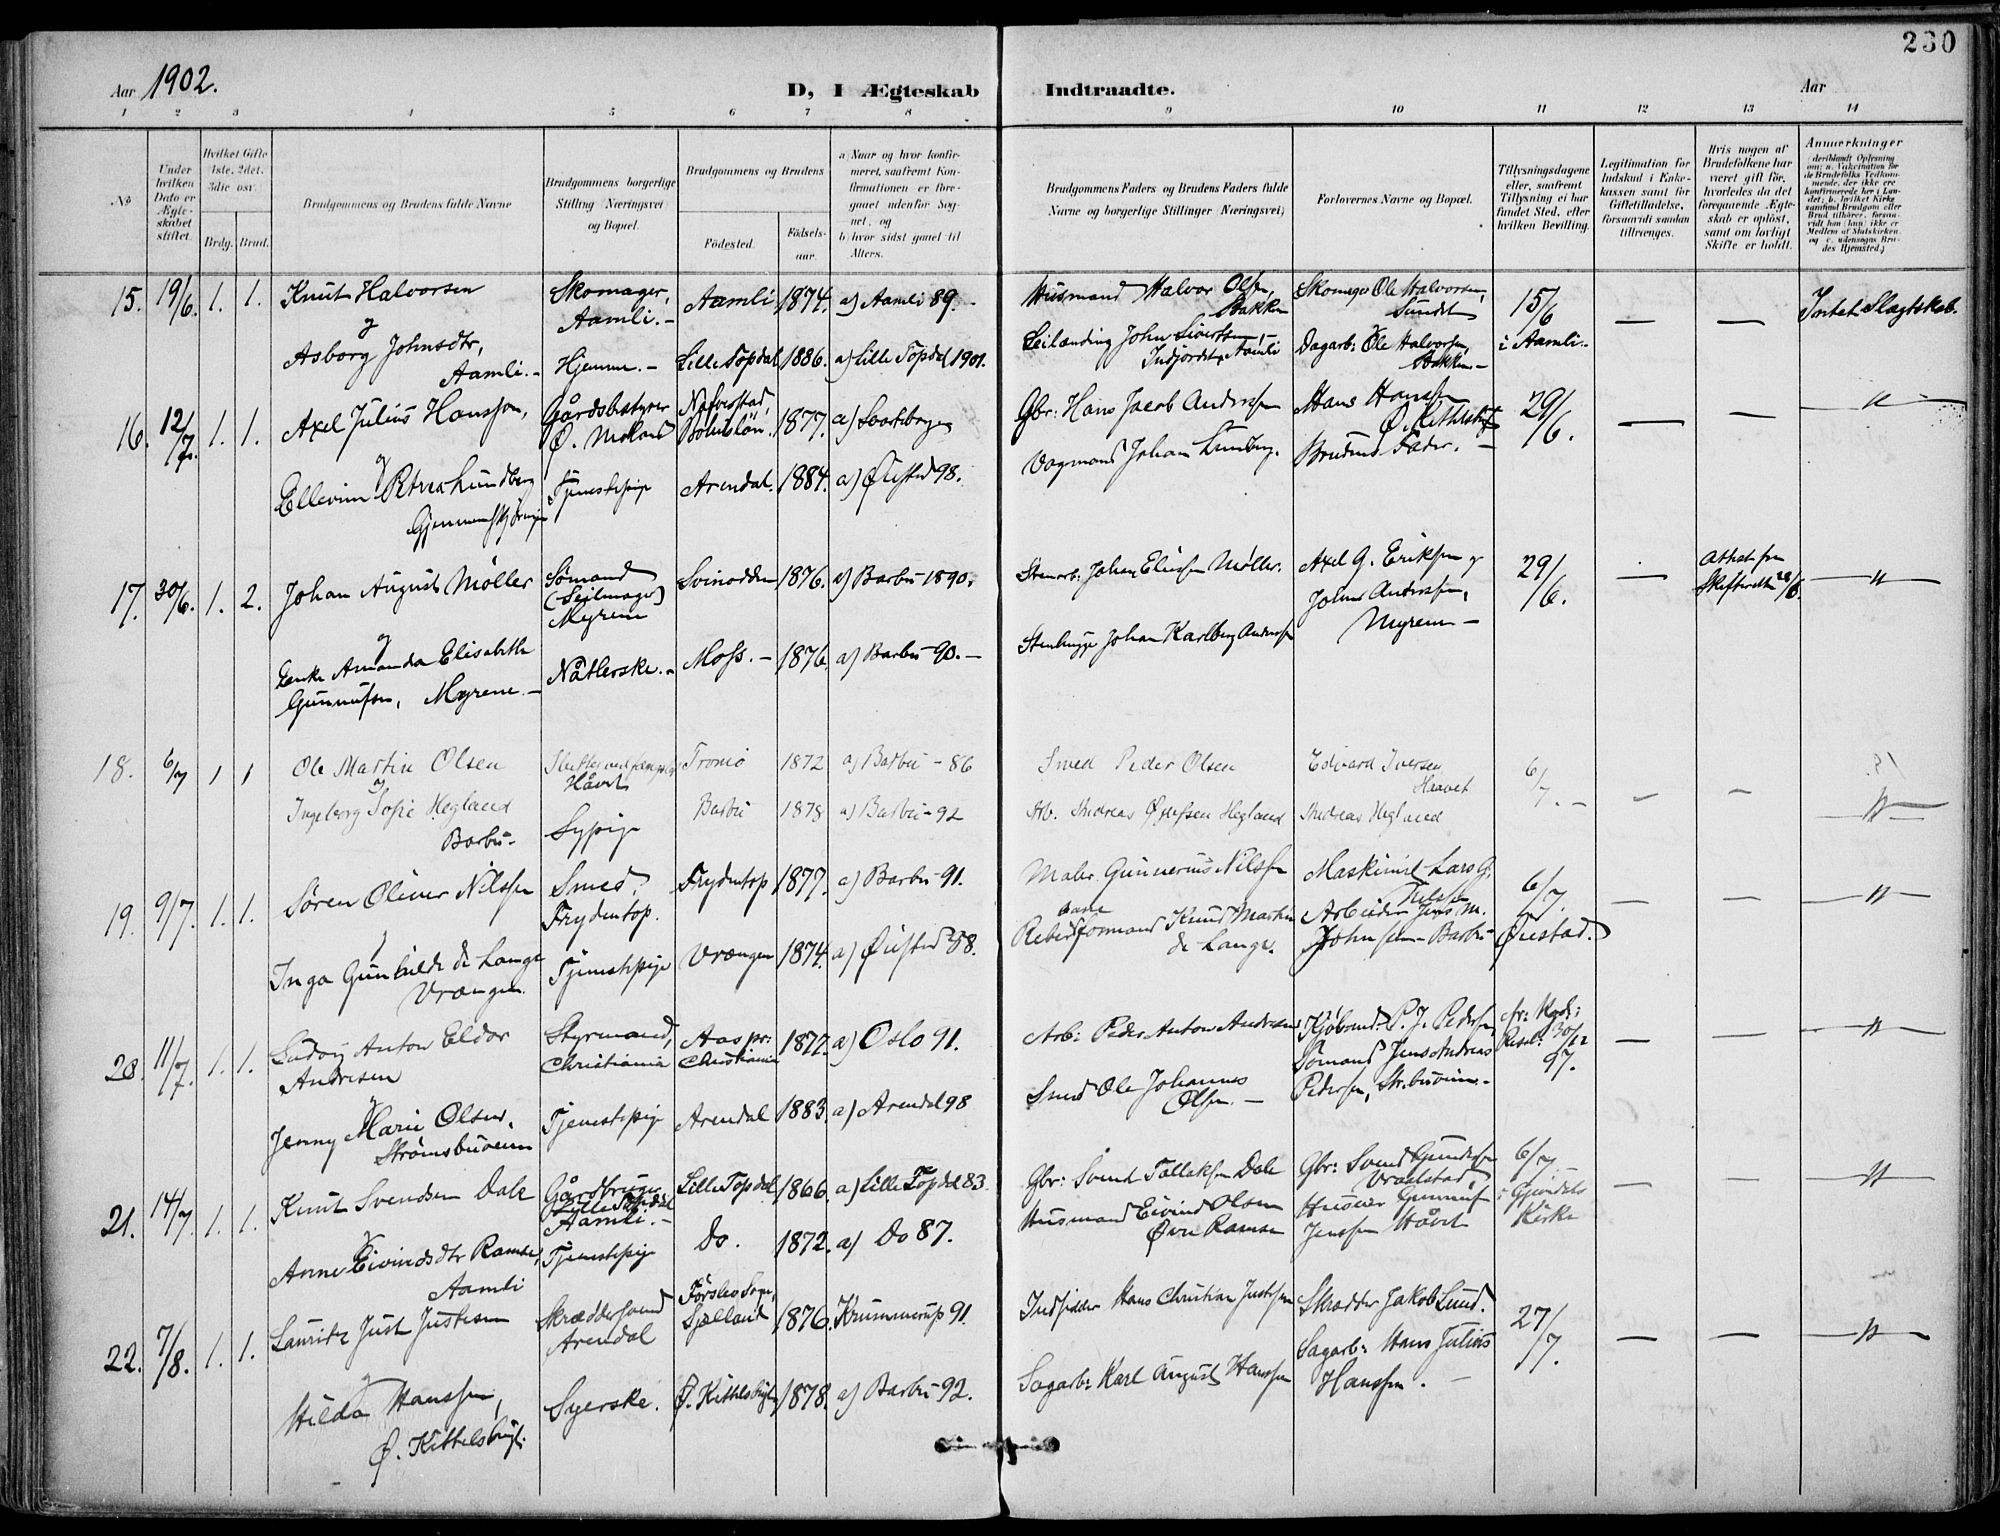 230
Aar 1902.
D, I Ægteskab Indtraadte.
Aar
1 2 3 4 5 6 7 8 9 10 11 12 13 14
No
Under hvilken Dato er Ægteskabet stiftet.
Hvilket Gifte 1ste, 2det, 3die osv.
Brdg. Brud.
Brudgommens og Brudens fulde Navne
Brudgommens borgerlige Stilling (Næringsvei) og Bopæl.
Brudgommens og Brudens
Fødested. Fødselsaar.
a) Naar og hvor konfirmeret, saafremt Konfirmationen er foregaaet udenfor Sognet, og
b) hvor sidst gaaet til Alters.
Brudgommens Faders og Brudens Faders fulde Navne og borgerlige Stillinger (Næringsvei)
Forlovernes Navne og Bopæl.
Tillysningsdagene eller, saafremt Tillysning ei har fundet Sted, efter hvilken Bevilling.
Legitimation for Indskud i Enkekassen samt for Giftetilladelse, forsaavidt saadan tiltrænges.
Hvis nogen af Brudefolkene har været gift før, hvorledes da det foregaaende Ægteskab er opløst, samt om lovligt Skifte er holdt.
Anmærkninger (deriblandt Oplysning om: a. Vakcination for de Brudefolks Vedkommende, der ikke ere konfirmerede her i Landet; b. hvilket Kirkesamfund Brudgom eller Brud tilhører, forsaavidt han (hun) ikke er Medlem af Statskirken, og c. udensogns Brudes Hjemsted.)
15. 19/6. 1. 1. Knut Halvorsen Skomager, Aamli.- Aamli 1874. a) Aamli 89.- Husmand Halvor Olsen, Bakken Skomager Ole Halvorsen, Sundet 15/6 i Aamli.- — — Intet Slagtskab.
og
Asborg Johnsdtr, Aamli.- Hjemme.- Lille Topdal 1886. a) Lille Topdal 1901. Leilænding John Sivertsen Aamli Dagarb: Ole Halvorsen, Bakken-
16. 12/7. 1. 1. Axel Julius Hansson, Gårdsbestyrer Ø. Moland 1877. a) Gbr: Hans Jacob Andersen Hans Hanssen 29/6. — — "
og
Ellevine Petrea Lundberg Tjenestepige Arendal. 1884. a) Øiestad 98. Vognmand Johan Lundberg. Brudens Fader.-
17. 30/6. 1. 2. Johan August Møller Sømand (Seilmager) Myrene Svinodden 1876. a) Barbu 1890. Stenarb. Johan Eliesen Møller. Axel G. Eriksen og 29/6. — Attest fra Skifteretten 28/6. "
og Johan Andersen, Myrene-
Enke Amanda Elisabeth
Gunnufsen, Myrene.- Nåtlerske.- Moss.- 1876. a) Barbu 90.- Stenhugger Johan Karlberg Andersen
18. 6/7 1 1 Ole Martin Olsen Håvet Tromø 1872 a) Barbu - 86 Smed Peder Olsen Edvard Iversen Haavet 6/7.- - - "
og
Ingeborg Sofie Hegland Barbu- Sypige Barbu 1878 a) Barbu - 92 Arb. Andreas Hegland Andreas Hegland
19. 9/7. 1. 1. Søren Oliver Nilssen Smed, Frydentop. Frydentop 1877. a) Barbu 91. Maler Gunnerius Nilssen Maskinist Lars G. Nilssen 6/7. Øiestad. — — "
og
Inga Gunhilde de Lange Vrængen. Tjenestepige Vrængen 1874. a) Øiestad 58. Reberbaneformand Knud Martin de Lange. Arbeider Jens M. Johnsen - Barbu
20. 11/7. 1. 1. Ludvig Anton Eldor Andresen Styrmand, Christiania Aas pr: Christiania 1877. a) Oslo 91. Arb: Peder Anton Andresen Kjøbmd: P. J. Pedersen Resol: 30/12 97. — — "
og
Jenny Marie Olsen, Strømsbuveien Tjenestepige Arendal 1883. a) Arendal 98 Smed Ole Johannes Olsen.- Sømand Jens Andreas Pedersen, Str.buveien.-
21. 14/7. 1. 1. Knut Svendsen Dale Gårdbruger Lille Topdal Aamli.- Lille Topdal 1866. a) Lille Topdal 83 Gbr: Svend Tallaksen Dale Gbr: Svend Gundersen 6/7 i Gjøvdals Kirke — — "
og
Anne Eivindsdtr Ramse, Aamli Tjenestepige Do. 1872. a) Do 87. Husmand Eivind Olsen Øvre Ramse Gunnuf Jenssen Håvet
22. 7/8. 1. 1. Lauritz Just Justesen Skræddersvend Arendal Førslev Sogn, Sjælland 1876. Krummerup 91. Indsidder Hans Christian Justesen Skrædder Jakob Lund. 27/7. — — "
og
Hilda Hanssen, Ø. Kittelsbugt. Syerske. Ø. Kittelsbugt 1878. a) Barbu 92. Sagarb: Karl August Hanssen Sagarb: Hans Julius Hanssen.-